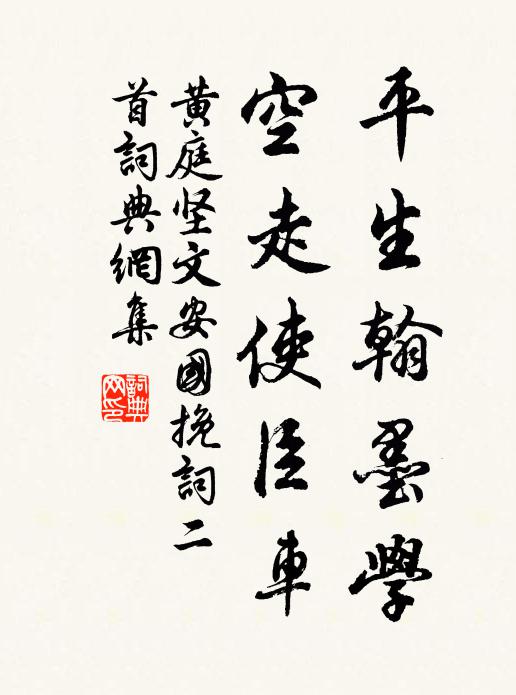 平生翰墨學
空走使臣車
黃庭坚文安國挽詞二
首詞典網集
詞典
网印